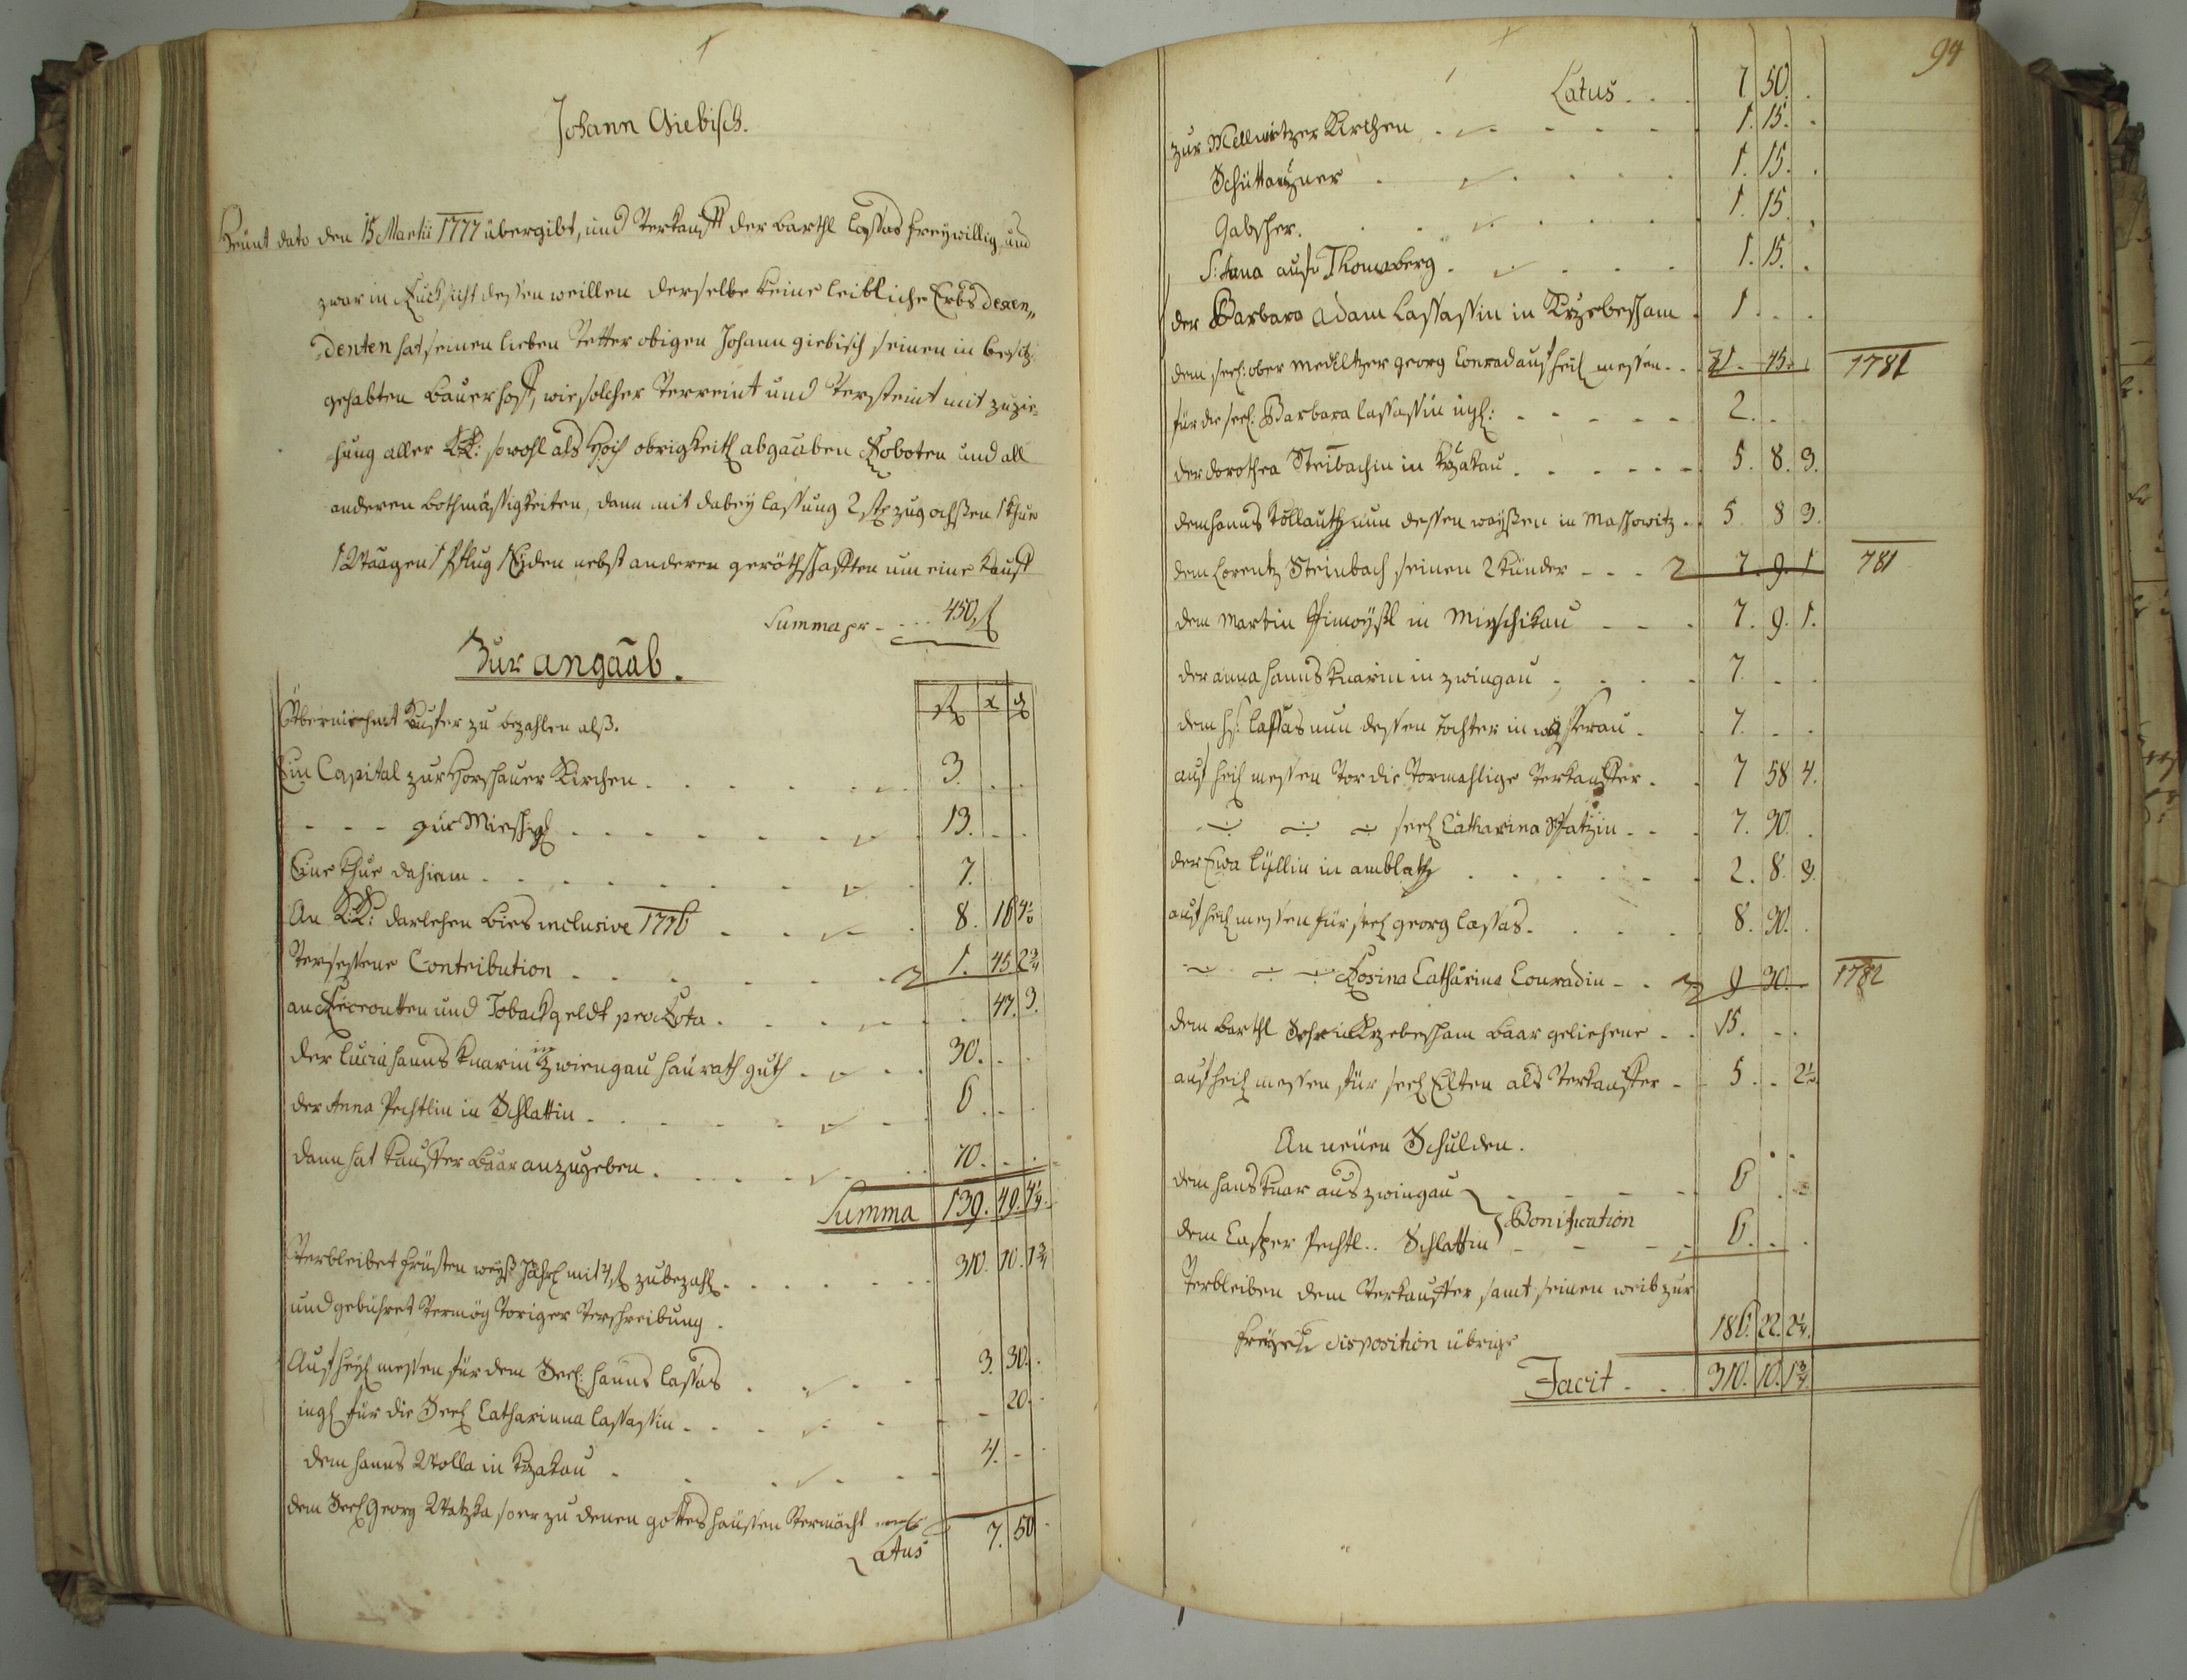 Johann Giebisch.
Heünt dato den 15 Martii 1777 übergibt, und Verkaufft der Barthl Lassas freywillig, und
zwar in Rucksicht dessen weillen derselbe keine leibliche Erbs Descen„
denten hat seinen lieben Vetter obigen Johann Giebisch seinen in besitz
gehabten Bauerhoff, wie solcher Verreint und Versteint mit zuzie„
hung aller KK: sowohl als Hoch obrigkeitl abgaaben Roboten und all
anderen bothmässigkeiten, dann mit dabey lassung 2 stk zug ochssen 1 Khue
1 Waagen 1 Pflug 1 Eyden nebst anderen geräthschafften um eine Kauff
Summa pr - ... 450 f
Zur angaab.
Übernimbt Kauffer zu bezahlen alss. f x d
Ein Capital zur Horschauer Kirchen . . . . 3. . .
- - - zur Mieschigl . . . . 13. . .
Eine Khue dahiem . . . . 7.
An K:K: darlehen bies inclusive 1776 . . 8. 16 4½
Versessene Contribution . . . . 1. 45 2¾
an Recroutten und Toback geldt pro Rota . . . . 47. 3.
der Lucia Hanns Knarin in Zwiengau haurath guth . . . 30. . .
der Anna Pechtlin in Schlattin . . . . 6. . .
dann hat Kauffer Baar anzugeben . . . . 70. . .
Summa 139. 49. 4¼.
Verbleibet früsten weyss Jährl mit 4 f zu bezahl . . . . 310. 10. 1¾
und gebühret Vermög Voriger Verschreibung .
Auf heyl messen für dem Seel: Hanns Lassas . . . 3. 30. .
ingl für die Seel Catharinna Lassassin . . . . - 20. .
dem Hanns Wolla in Krzakau . . . . 4. - .
dem Seel Georg Watzka so er zu denen gotteshäussen Vermächt
Latus 7. 50 .
94
Latus . . . 7 50. .
zur Mellwitzer Kirchen . . . . 1. 15. .
Schüttarzner . . . . 1. 15. .
Gabscher. . . . . 1. 15. .
S: Anna aufn Thomaberg . . . . 1. 15. .
der Barbara Adam Lassassin in Krzebescham . 1 . . .
dem seel: ober Medlitzer Georg Conrad auf heil messen. . 31. 45. . 1781
für die seel. Barbara Lassassin ingl: . . . . 2. . .
der Dorothea Steinbachin in Krzakau . . . . 5. 8. 3.
dem Hanns Kollauth nun dessen waysen in Maschowitz . . 5 8 3.
dem Lorentz Steinbach seinen 2 Künder - - - 2 7. 9. 1 781
dem Martin Simaysl in Mirschikau . . . 7. 9. 1.
der Anna Hanns Knarin in Zwingau . . . . 7. . .
dem Hs: Lassas nun dessen Tochter in Wasserau . 7. . .
auf heil messen Vor die Vormahlige Verkauffer . . 7 58 4.
seel Catharina Spatzin . . 7. 30. .
der Ewa Lyllin in Amblatz . . . . 2. 8. 3.
auf heil messen für seel Georg Lassas . . . . 8. 30. .
Rosina Catharina Conradin - . 9 30. . 1782
dem Barthl in Krzebescham baar geliehene . . 15. . .
auf heil messen für seel Elten als Verkauffer . . 5. . 2½.
An neuen Schulden.
dem Hans Knar aus Zwingau } . . . 6 . .
Bonification
dem Casper Pechtl .. Schlattin } - - - 6. . .
Verbleiben dem Verkauffer samt seinen weib zur
freyen Disposition übrige 186. 22. 2¼.
Facit . . . 310. 10. 1¾.